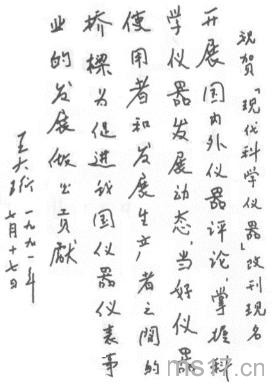 祝贺「现代科学仪器」改刊现名
开展国内外仪器评论,掌握科
学仪器发展动态,当好仪器
使用者和发展生产者之间的
桥樑为促进我国仪器仪表事
业的发展做出贡献
王大珩
一九九一年
七月十七日
ms17.cn